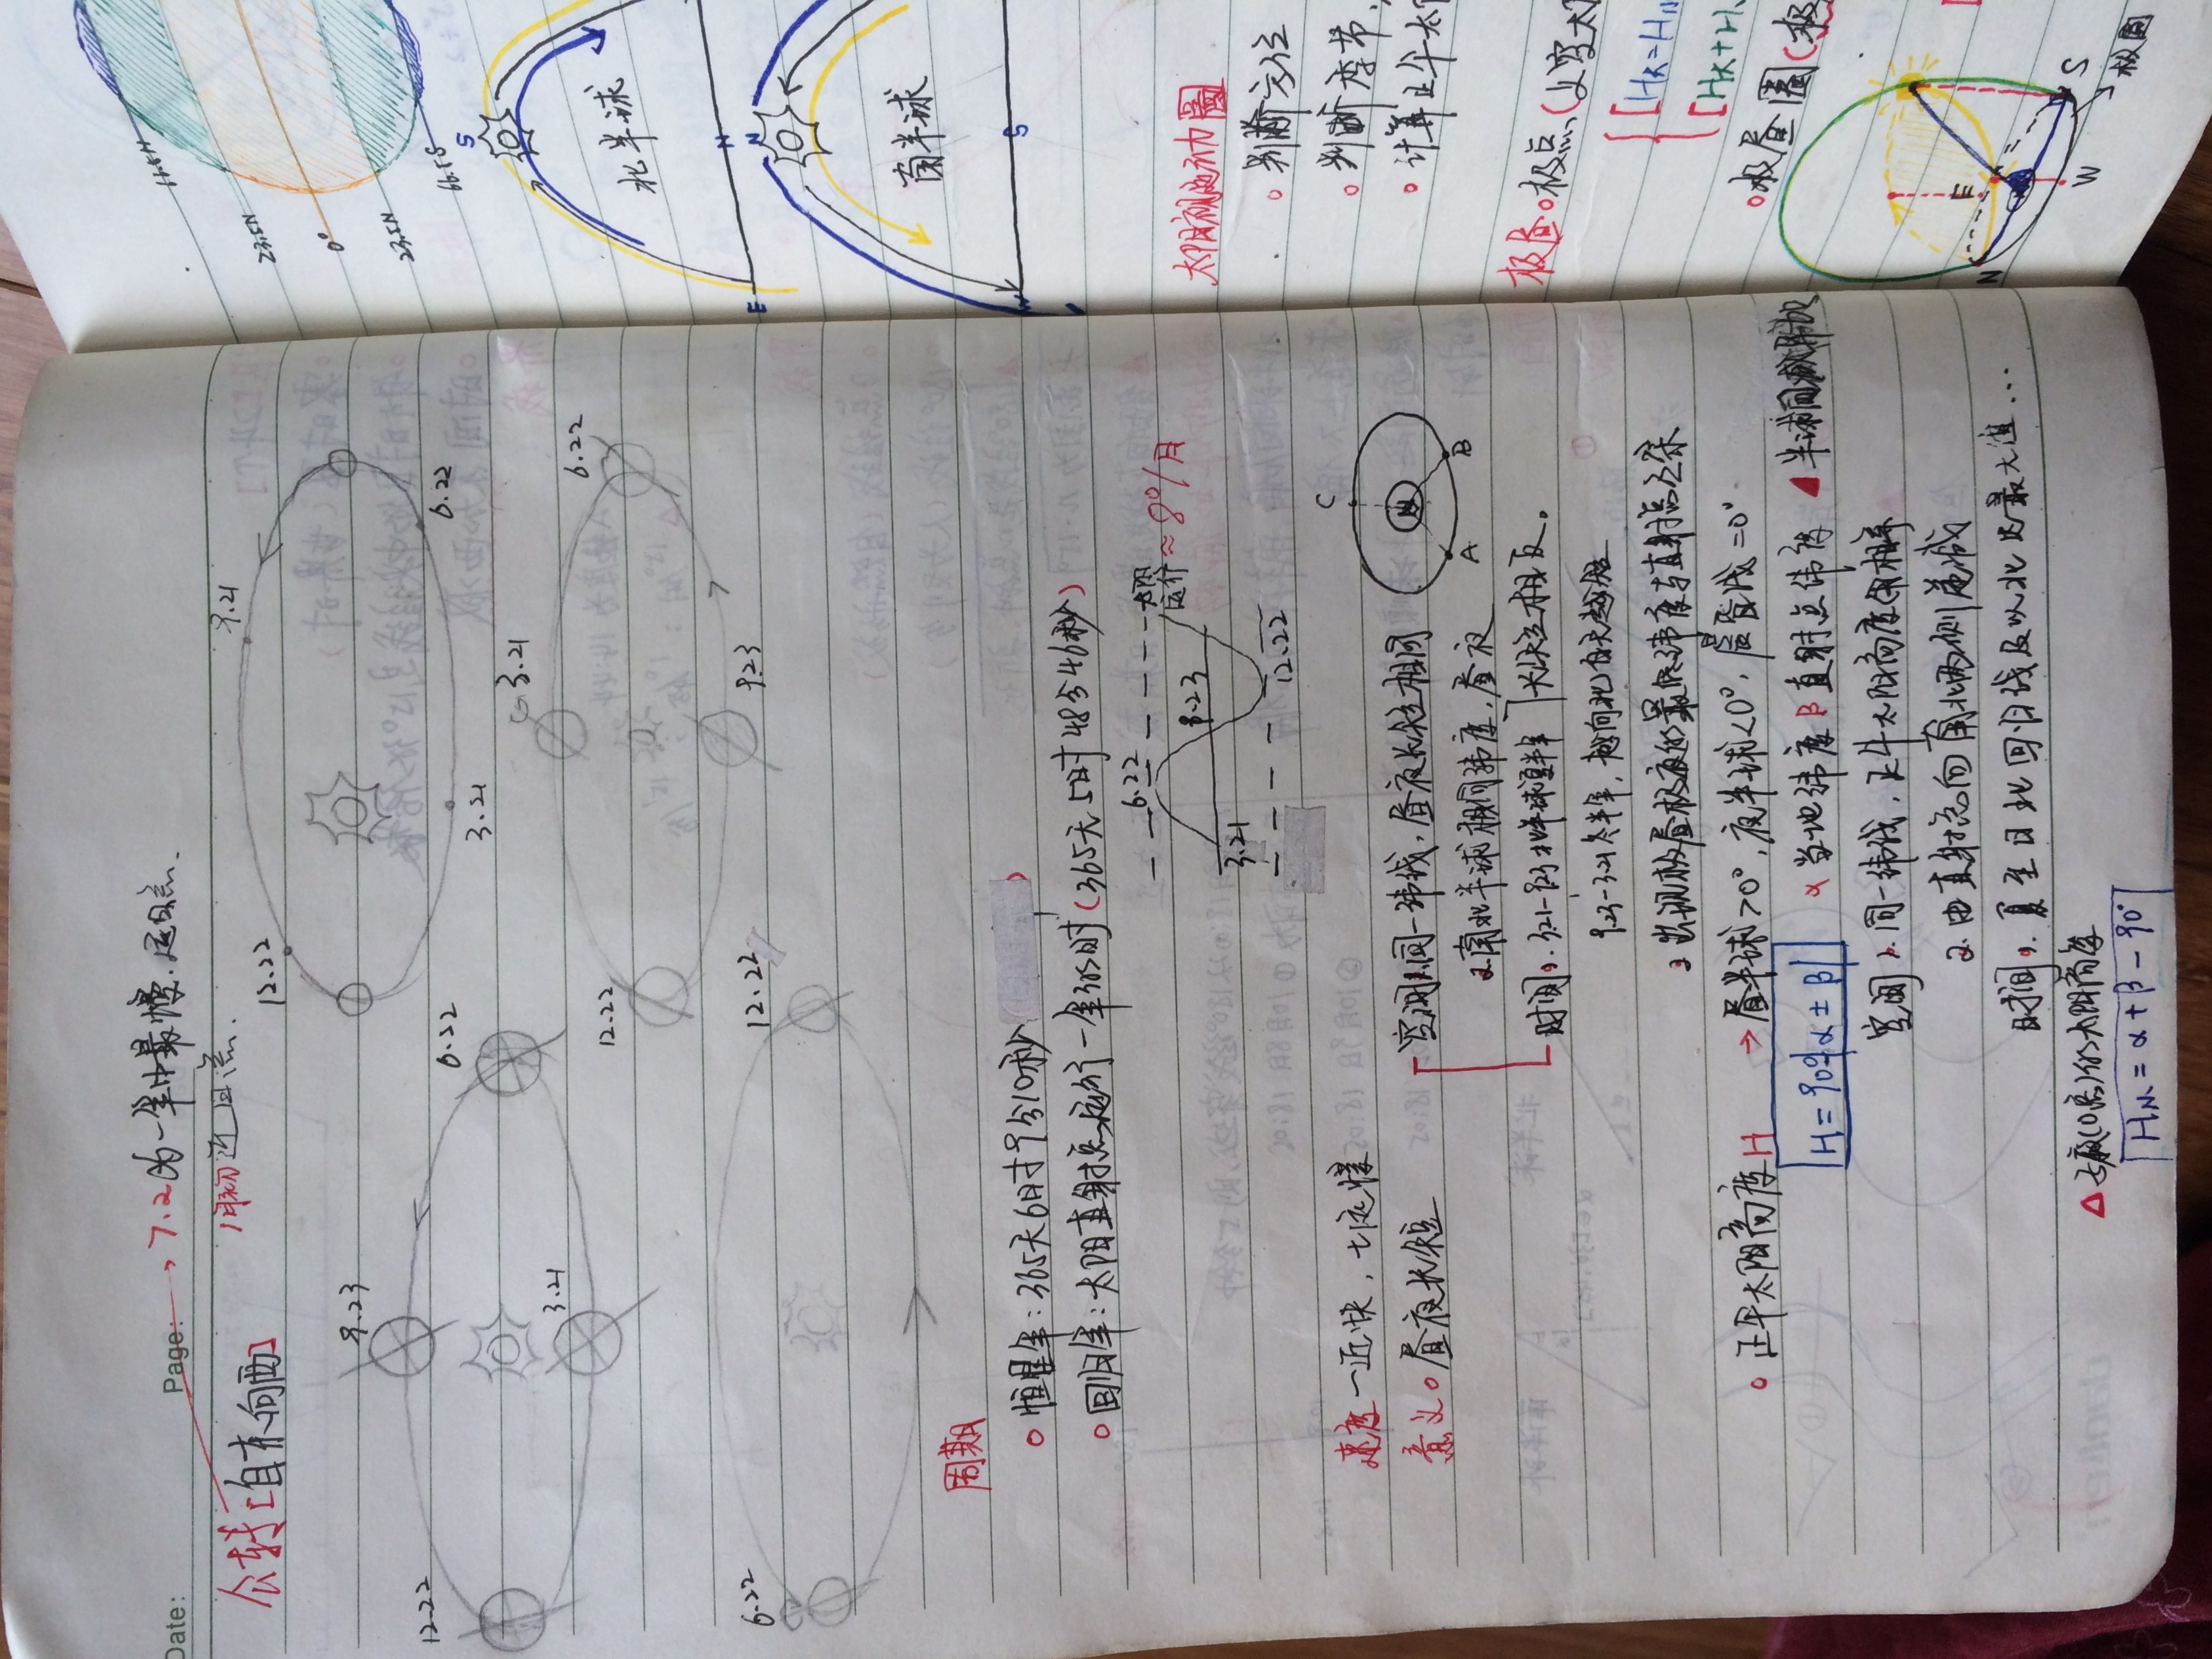 Date:
Page:
7.2为一年中最慢.远日点.
1月初近日点.
公转[自东向西]
9.21
12.22
6.22
3.21
9.23
12.22
6.22
3.21
3.21
6.22
12.22
9.23
6.22
12.22
周期
恒星年:365天6时9分10秒
回归年:太阳直射点运行一年的时(365天5时48分46秒)
6.22
太阳运行≈8°/月
9.23
3.21
12.22
速度 一近快,七远慢
C
意义 昼夜长短
空间1.同一纬线,昼夜长短相同
N
A B
2.南北半球相同纬度,昼夜
长短相反。
时间1.3.21-9.23北半球夏半年
9.23-3.21冬半年,越向北白天越短
2.出现极昼极夜的最低纬度与直射点互余
正午太阳高度H → 昼半球>0°,夜半球<0°,晨昏线=0°
H=90°-|α±β| α当地纬度 β直射点纬度 ▲半球同减异加
空间1.同一纬线,正午太阳高度角相等
2.由直射点向南北两侧递减
时间1.夏至日北回归线及以北达最大值...
△子夜(0点)的太阳高度
H=α+β-90°
66.5N
23.5N
0°
23.5N
66.5S
S
北半球
E
N
N
南半球
S
太阳视运动圖
判断方位
判断季节,
计算正午太
极昼 极点(
[H大=H
[H大+H
极昼圈(极
N
E
S
W
极圆